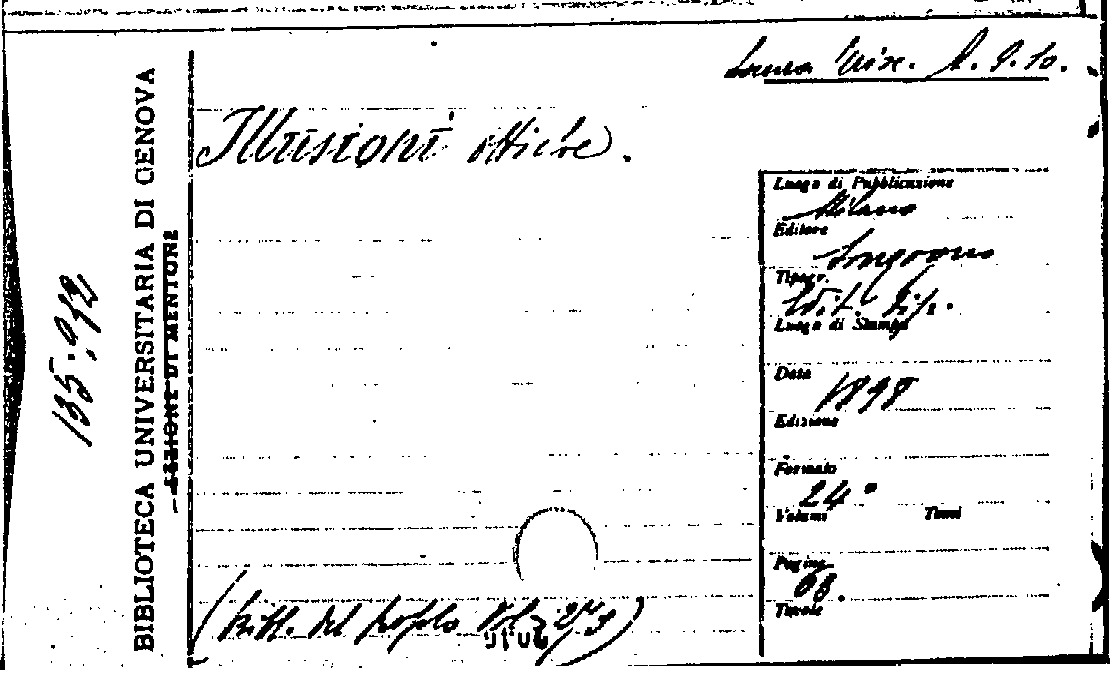 Misc. A. 9. 10.
Illusioni ottiche.
BIBLIOTECA UNIVERSITARIA DI GENOVA
SEZIONE DI MENTONE
135.912
Luogo di Pubblicazione
Milano
Editore
Sonzogno
Tipogr.
Edit. Tip.
Luogo di Stampa
Data
1898
Edizione
Formato
24°
Volumi Tomi
Pagine
68.
Tavole
(Bibl. del popolo Vol.